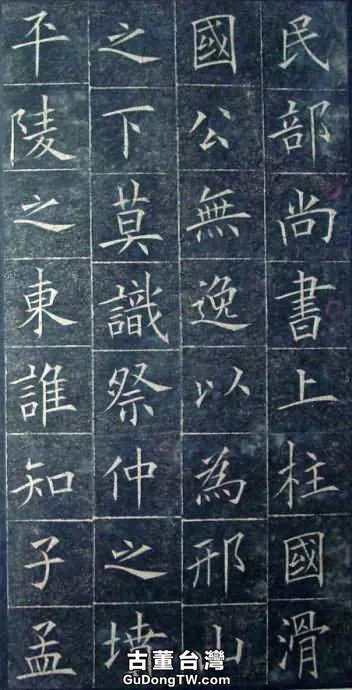 民部尚書上柱國滑
國公無逸以為邢山
之下莫識祭仲之墳
平陵之東誰知子孟
古董台灣
GuDongTW.com